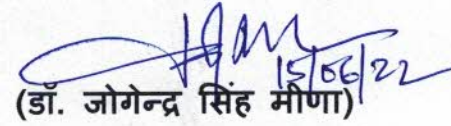 15/06/22
(डॉ. जोगेन्द्र सिंह मीणा)